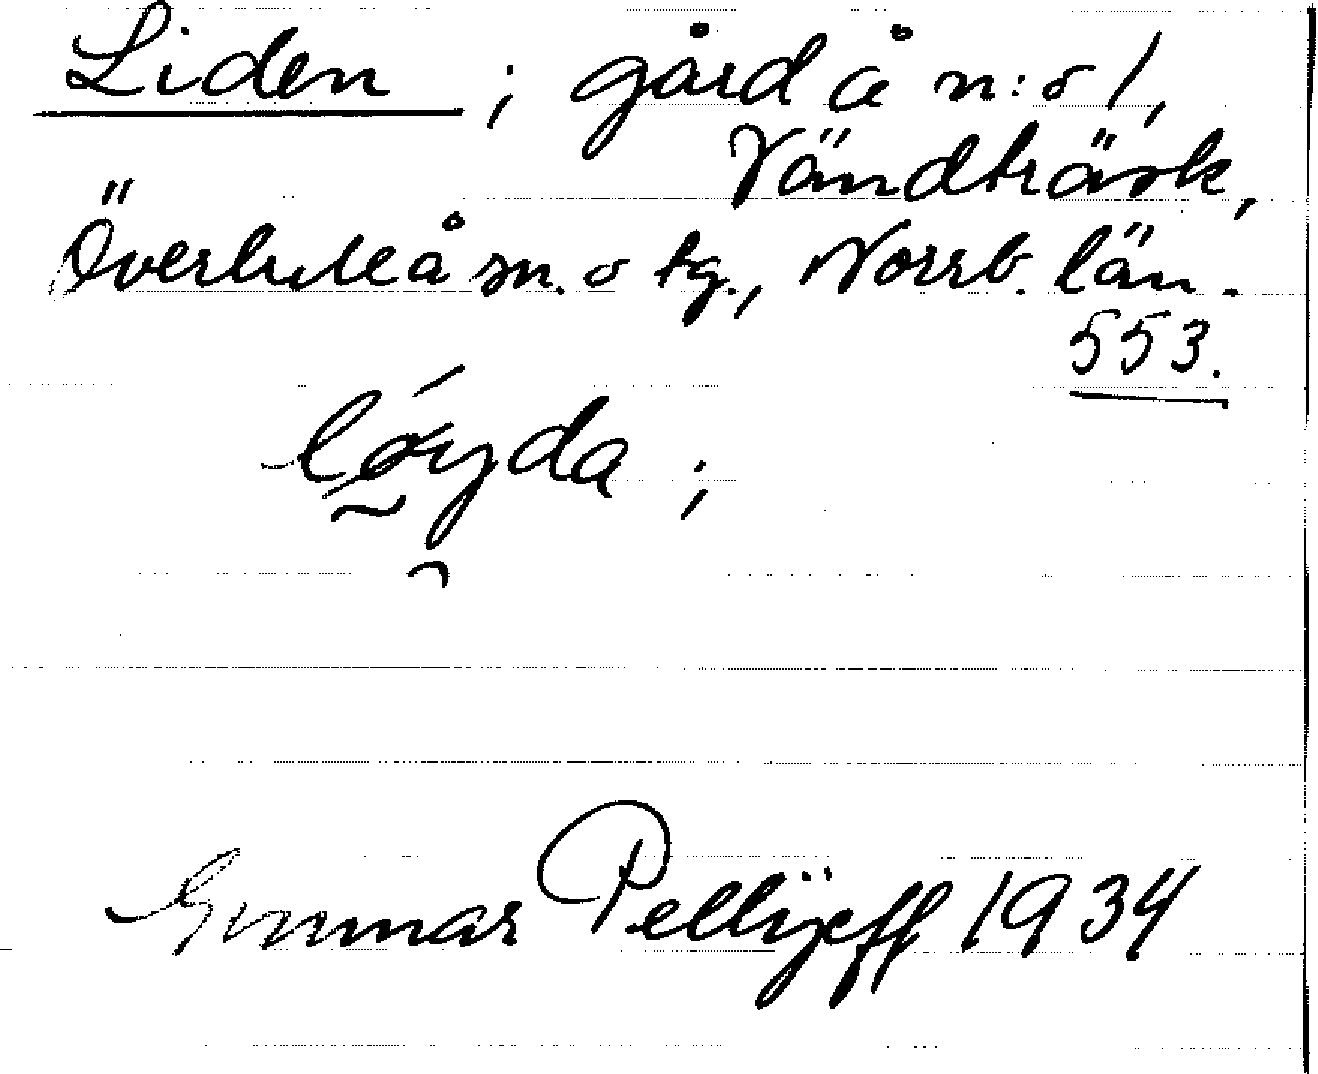 Liden ; gård å n:o 1,
Vändträsk,
Överluleå sn. o tg., Norrb. län.
553.
lǿyda ;
Gunnar Pellijeff 1934